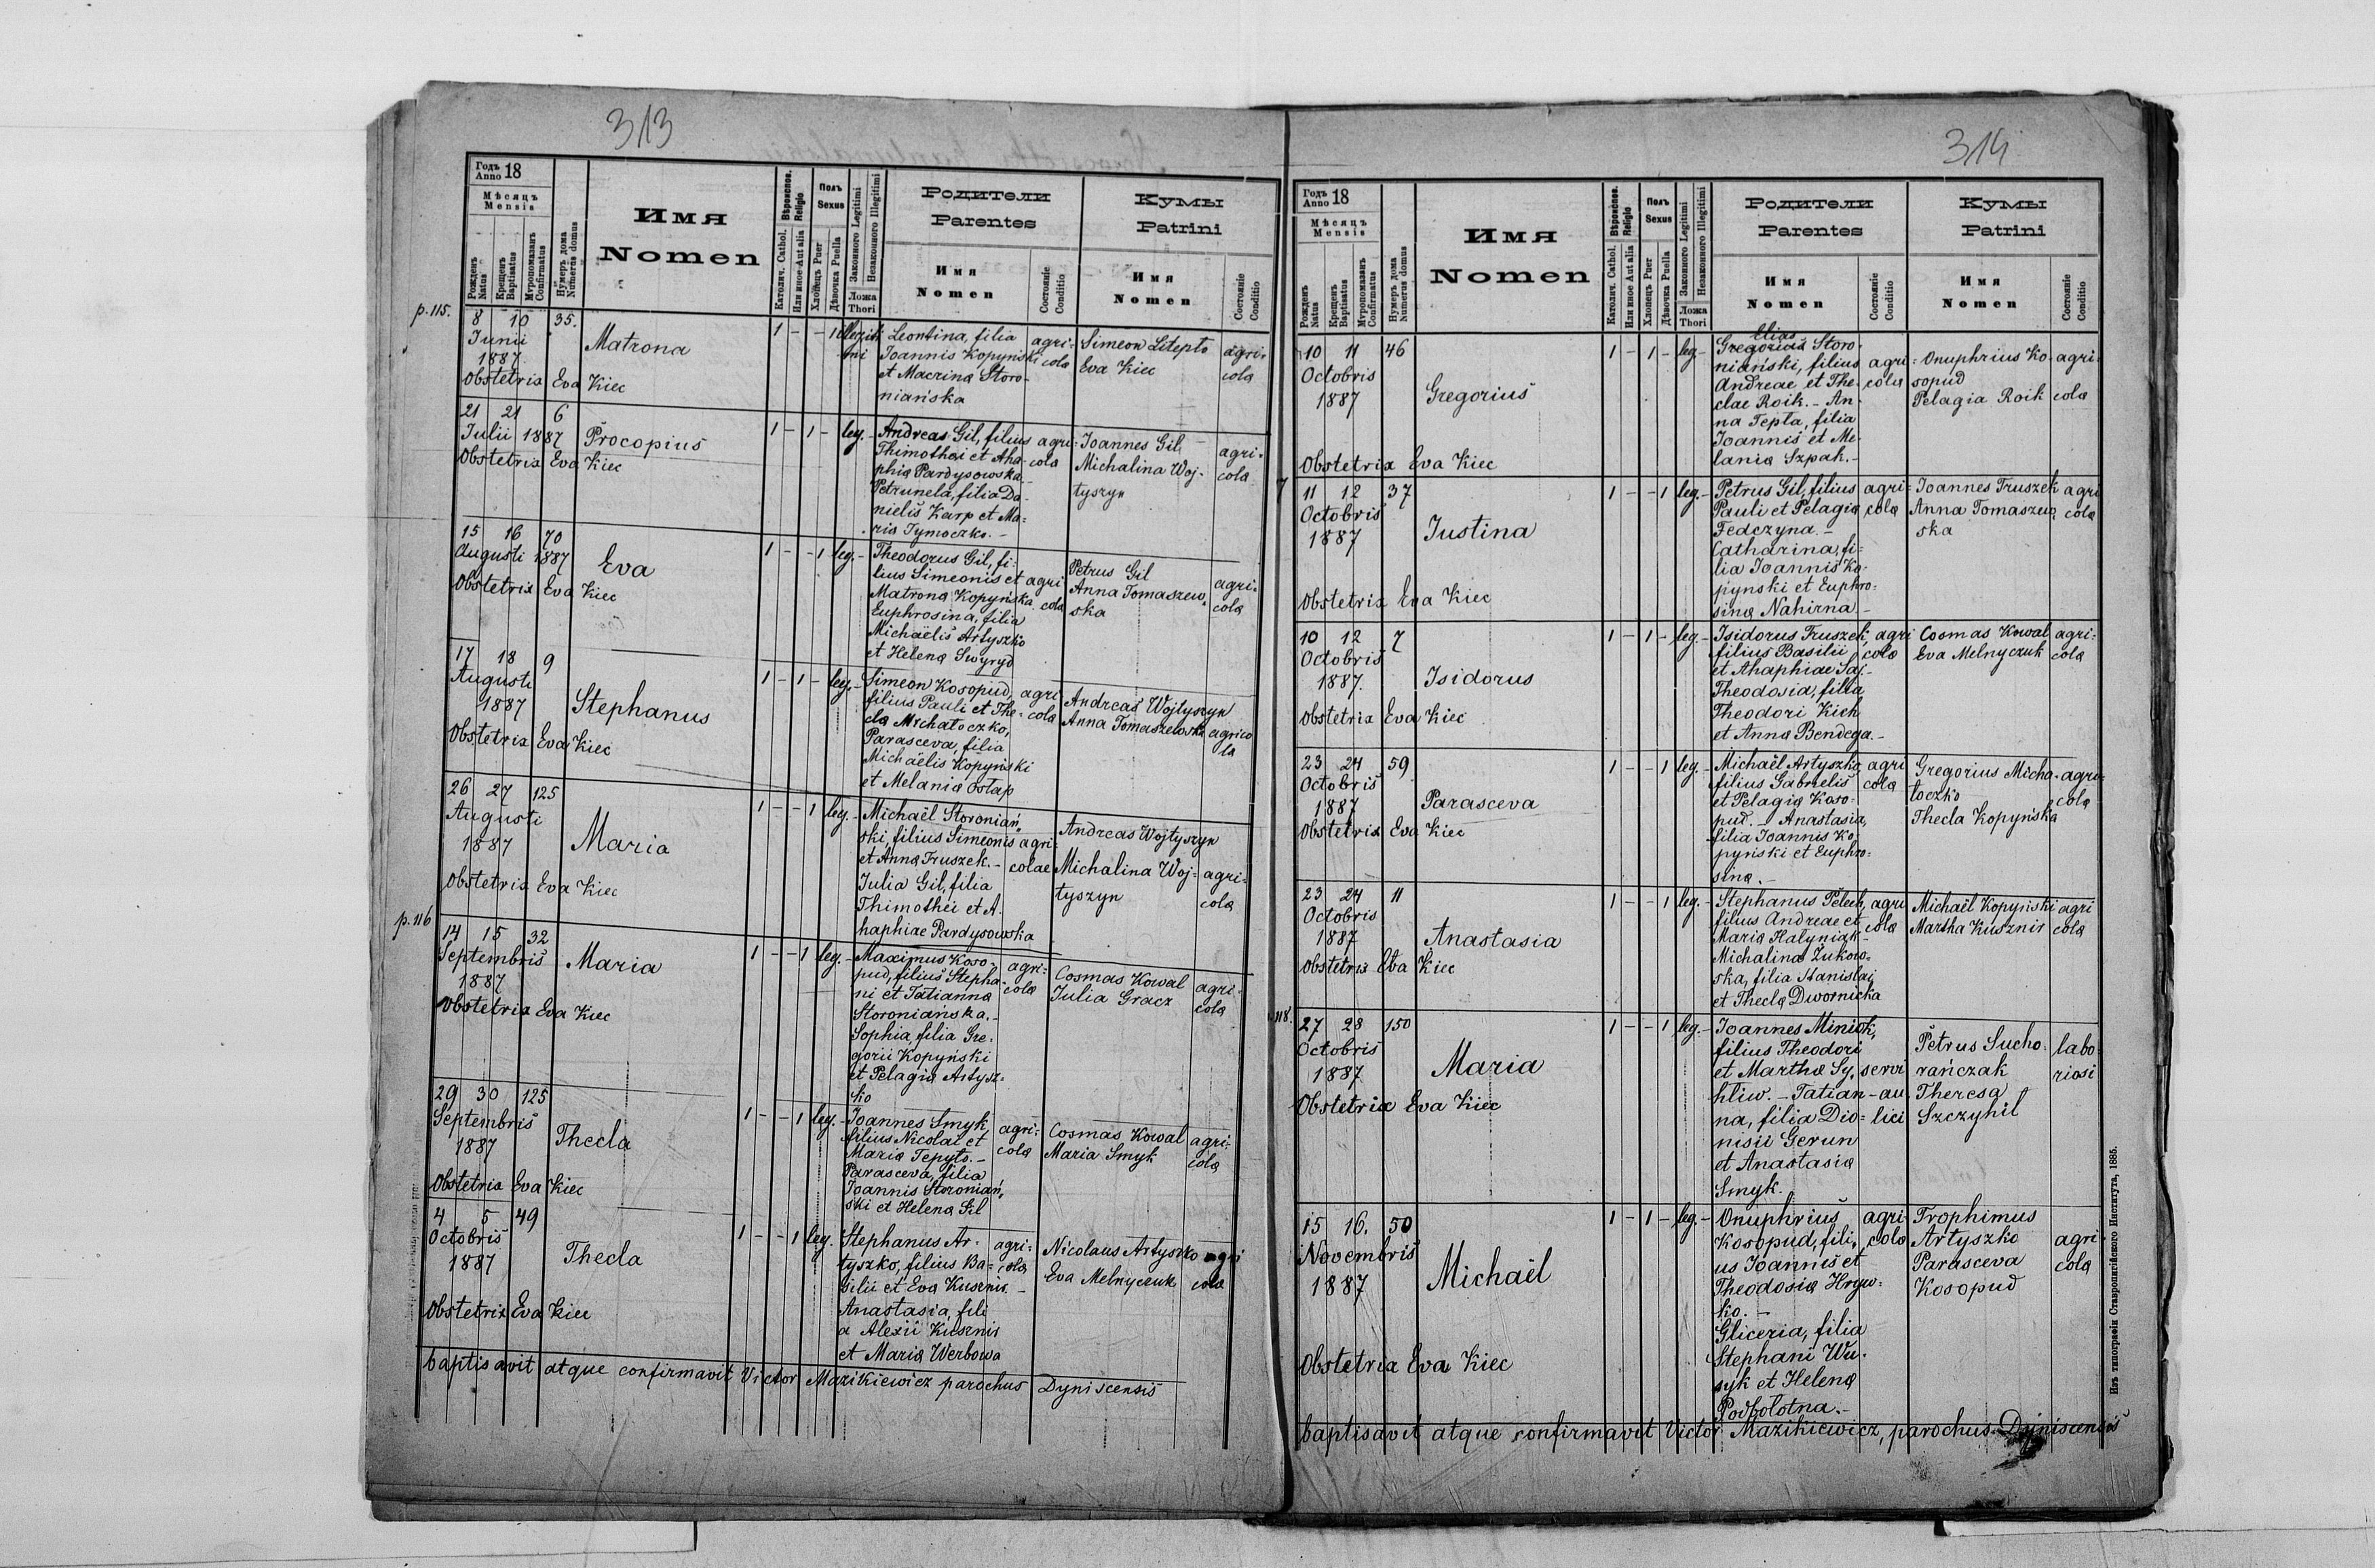 313
Годъ 18
Anno
Мѣсяцъ
Mensis
Рожденъ Natus
Крещенъ Baptisatus
Муропомазанъ Confirmatus
Нумеръ дома Numerus domus
Имя
Nomen
Вѣроиспов. Religio
Католич. Cathol.
Или иное-Aut alia
Полъ
Sexus
Хлопецъ Puer
Дѣвочка Puella
Законного Legitimi
Незаконного Illegitimi
Ложа
Thori
Родители
Parentes
Имя
Nomen
Состояніе
Conditio
Кумы
Patrini
Имя
Nomen
Состояніе
Conditio
p. 115.
8 10 35.
Junii
1887
Obstetrix Eva Kiec
Matrona
1 - - 1 legiti
mi
Leontina, filia
Joannis Kopyński
et Macrina Storo-
niańska
agri-
cola
Simeon Litepto
Eva Kiec
agri-
cola
21 21 6
Julii 1887
Obstetrix Eva Kiec
Procopius
1 - 1 - leg. -
Andreas Gil, filius
Thimothei et Aha-
phia Pardysowska.-
Petrunela, filia Da-
nielis Karp et Ma-
ria Tymoczko.-
agri-
cola
Joannes Gil
Michalina Woj-
tyszyn
agri-
cola
15 16 70
Augusti 1887
Obstetrix Eva Kiec
Eva
1 - - 1 leg. -
Theodorus Gil, fi-
lius Simeonis et
Matrona Kopyńska
Euphrosina, filia
Michaëlis Artyszko
et Helena Swyryd
agri
cola
Petrus Gil
Anna Tomaszew-
ska
agri-
cola
17 18 9
Augusti
1887
Obstetrix Eva Kiec
Stephanus
1 - 1 - leg. -
Simeon Kosopud,
filius Pauli et The-
cla Michałoczko,
Parasceva, filia
Michaëlis Kopyński
et Melania Ostap
agri
cola
Andreas Wojtyszyn
Anna Tomaszewska
agrico
la
26 27 125
Augusti
1887
Obstetrix Eva Kiec
Maria
1 - - 1 leg. -
Michaël Storoniań-
ski, filius Simeonis
et Anna Truszek.-
Julia Gil, filia
Thimothei et A-
haphiae Pardysowska
agri-
colae
Andreas Wojtyszyn
Michalina Woj-
tyszyn
agri-
cola
p. 116
14 15 32
Septembris
1887
Obstetrix Eva Kiec
Maria
1 - - 1 leg. -
Maximus Koso-
pud, filius Stepha-
ni et Tatianna
Storonianska.-
Sophia, filia Gre-
gorii Kopyński
et Pelagia Artysz-
ko
agri-
cola
Cosmas Kowal
Julia Gracz
agri-
cola
29 30 125
Septembris
1887
Obstetrix Eva Kiec
Thecla
1 - - 1 leg. -
Joannes Smyk,
filius Nicolai et
Maria Tepyto.-
Parasceva, filia
Joannis Storoniań-
ski et Helena Gil
agri-
cola
Cosmas Kowal
Maria Smyk
agri-
cola
4 5 49
Octobris
1887
Obstetrix Eva Kiec
Thecla
1 - - 1 leg.
Stephanus Ar-
tyszko, filius Ba-
silii et Eva Kusznir.-
Anastasia, fili
a Alexii Kusznir
et Maria Werbowa
agri-
cola
Nicolaus Artyszko
Eva Melnyczuk
agri
cola
baptisavit atque confirmavit Victor Mazikiewicz parochus Dyniscensis
314
Годъ 18
Anno
Мѣсяцъ
Mensis
Рожденъ Natus
Крещенъ Baptisatus
Муропомазанъ Confirmatus
Нумеръ дома Numerus domus
Имя
Nomen
Вѣроиспов. Religio
Католич. Cathol.
Или иное Aut alia
Полъ
Sexus
Хлопецъ Puer
Дѣвочка Puella
Законного Legitimi
Незаконного Illegitimi
Ложа
Thori
Родители
Parentes
Имя
Nomen
Состояніе
Conditio
Кумы
Patrini
Имя
Nomen
Состояніе
Conditio
10 11 46
Octobris
1887
Obstetrix Eva Kiec
Gregorius
1 - 1 - leg. -
Elias
Gregorius Storo-
niański, filius
Andreae et The-
clae Roik.- An-
na Tepta, filia
Joannis et Me-
lania Szpak.-
agri-
cola
Onuphrius Ko-
sopud
Pelagia Roik
agri-
cola
11 12 37
Octobris
1887
Obstetrix Eva Kiec
Justina
1 - - 1 leg. -
Petrus Gil, filius
Pauli et Pelagia
Fedczyna.-
Catharina, fi-
lia Joannis Ko-
pynski et Euphro-
sina Nahirna.-
agri-
cola
Joannes Truszek
Anna Tomaszew-
ska
agri
cola
10 12 7
Octobris
1887.
Obstetrix Eva Kiec
Isidorus
1 - 1 - leg. -
Isidorus Truszek,
filius Basilii
et Ahaphiae Saj.-
Theodosia, filia
Theodori Kich
et Anna Bendega.-
agri
cola
Cosmas Kowal
Eva Melnyczuk
agri-
cola
23 24 59
Octobris
1887
Obstetrix Eva Kiec
Parasceva
1 - - 1 leg. -
Michaël Artyszko
filius Gabrielis
et Pelagia Koso-
pud.- Anastasia,
filia Joannis Ko-
pyński et Euphro-
sina.-
agri
cola
Gregorius Micha-
łoczko
Thecla Kopyńska
agri-
cola
23 24 11
Octobris
1887
Obstetrix Eva Kiec
Anastasia
1 - - 1 leg. -
Stephanus Pelech,
filius Andreae et
Maria Halyniak-
Michalina Żukow-
ska, filia Stanislai
et Thecla Dwornicka
agri
cola
Michaël Kopyński
Martha Kusznir
agri
cola
118.
27 28 150
Octobris
1887
Obstetrix Eva Kiec
Maria
1 - - 1 leg. -
Joannes Miniok,
filius Theodori
et Martha Sy-
hliw.- Tatian-
na, filia Dio-
nisii Gerun
et Anastasia
Smyk.
servi
au-
lici
Petrus Sucho-
rańczak
Theresa
Szczyhil
labo-
riosi
15 16. 50
Novembris
1887
Obstetrix Eva Kiec
Michaël
1 - 1 - leg. -
Onuphrius
Kosopud, fili-
us Joannis et
Theodosia Hryw-
ko.-
Gliceria, filia
Stephani Wa-
syk et Helena
Podbolotna.-
agri-
cola
Trophimus
Artyszko
Parasceva
Kosopud
agri-
cola
baptisavit atque confirmavit Victor Mazikiewicz, parochus Dyniscensis
Изъ типографіи Ставропигійского Института, 1885.